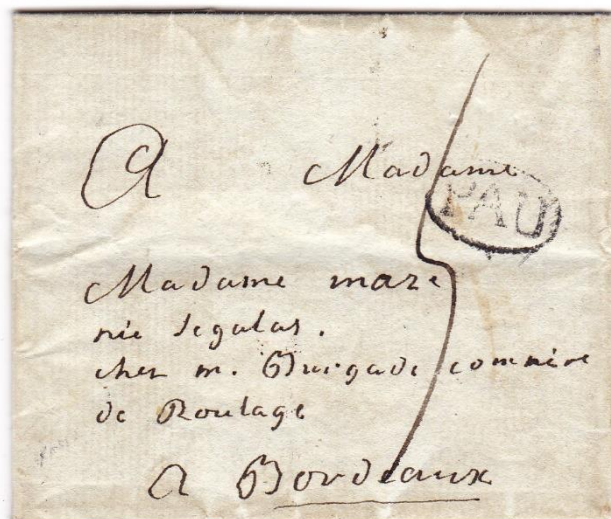 A Madame
PAU
5
Madame maze
née Segalas.
chez m. Burgade commire
de Roulage
A Bordeaux